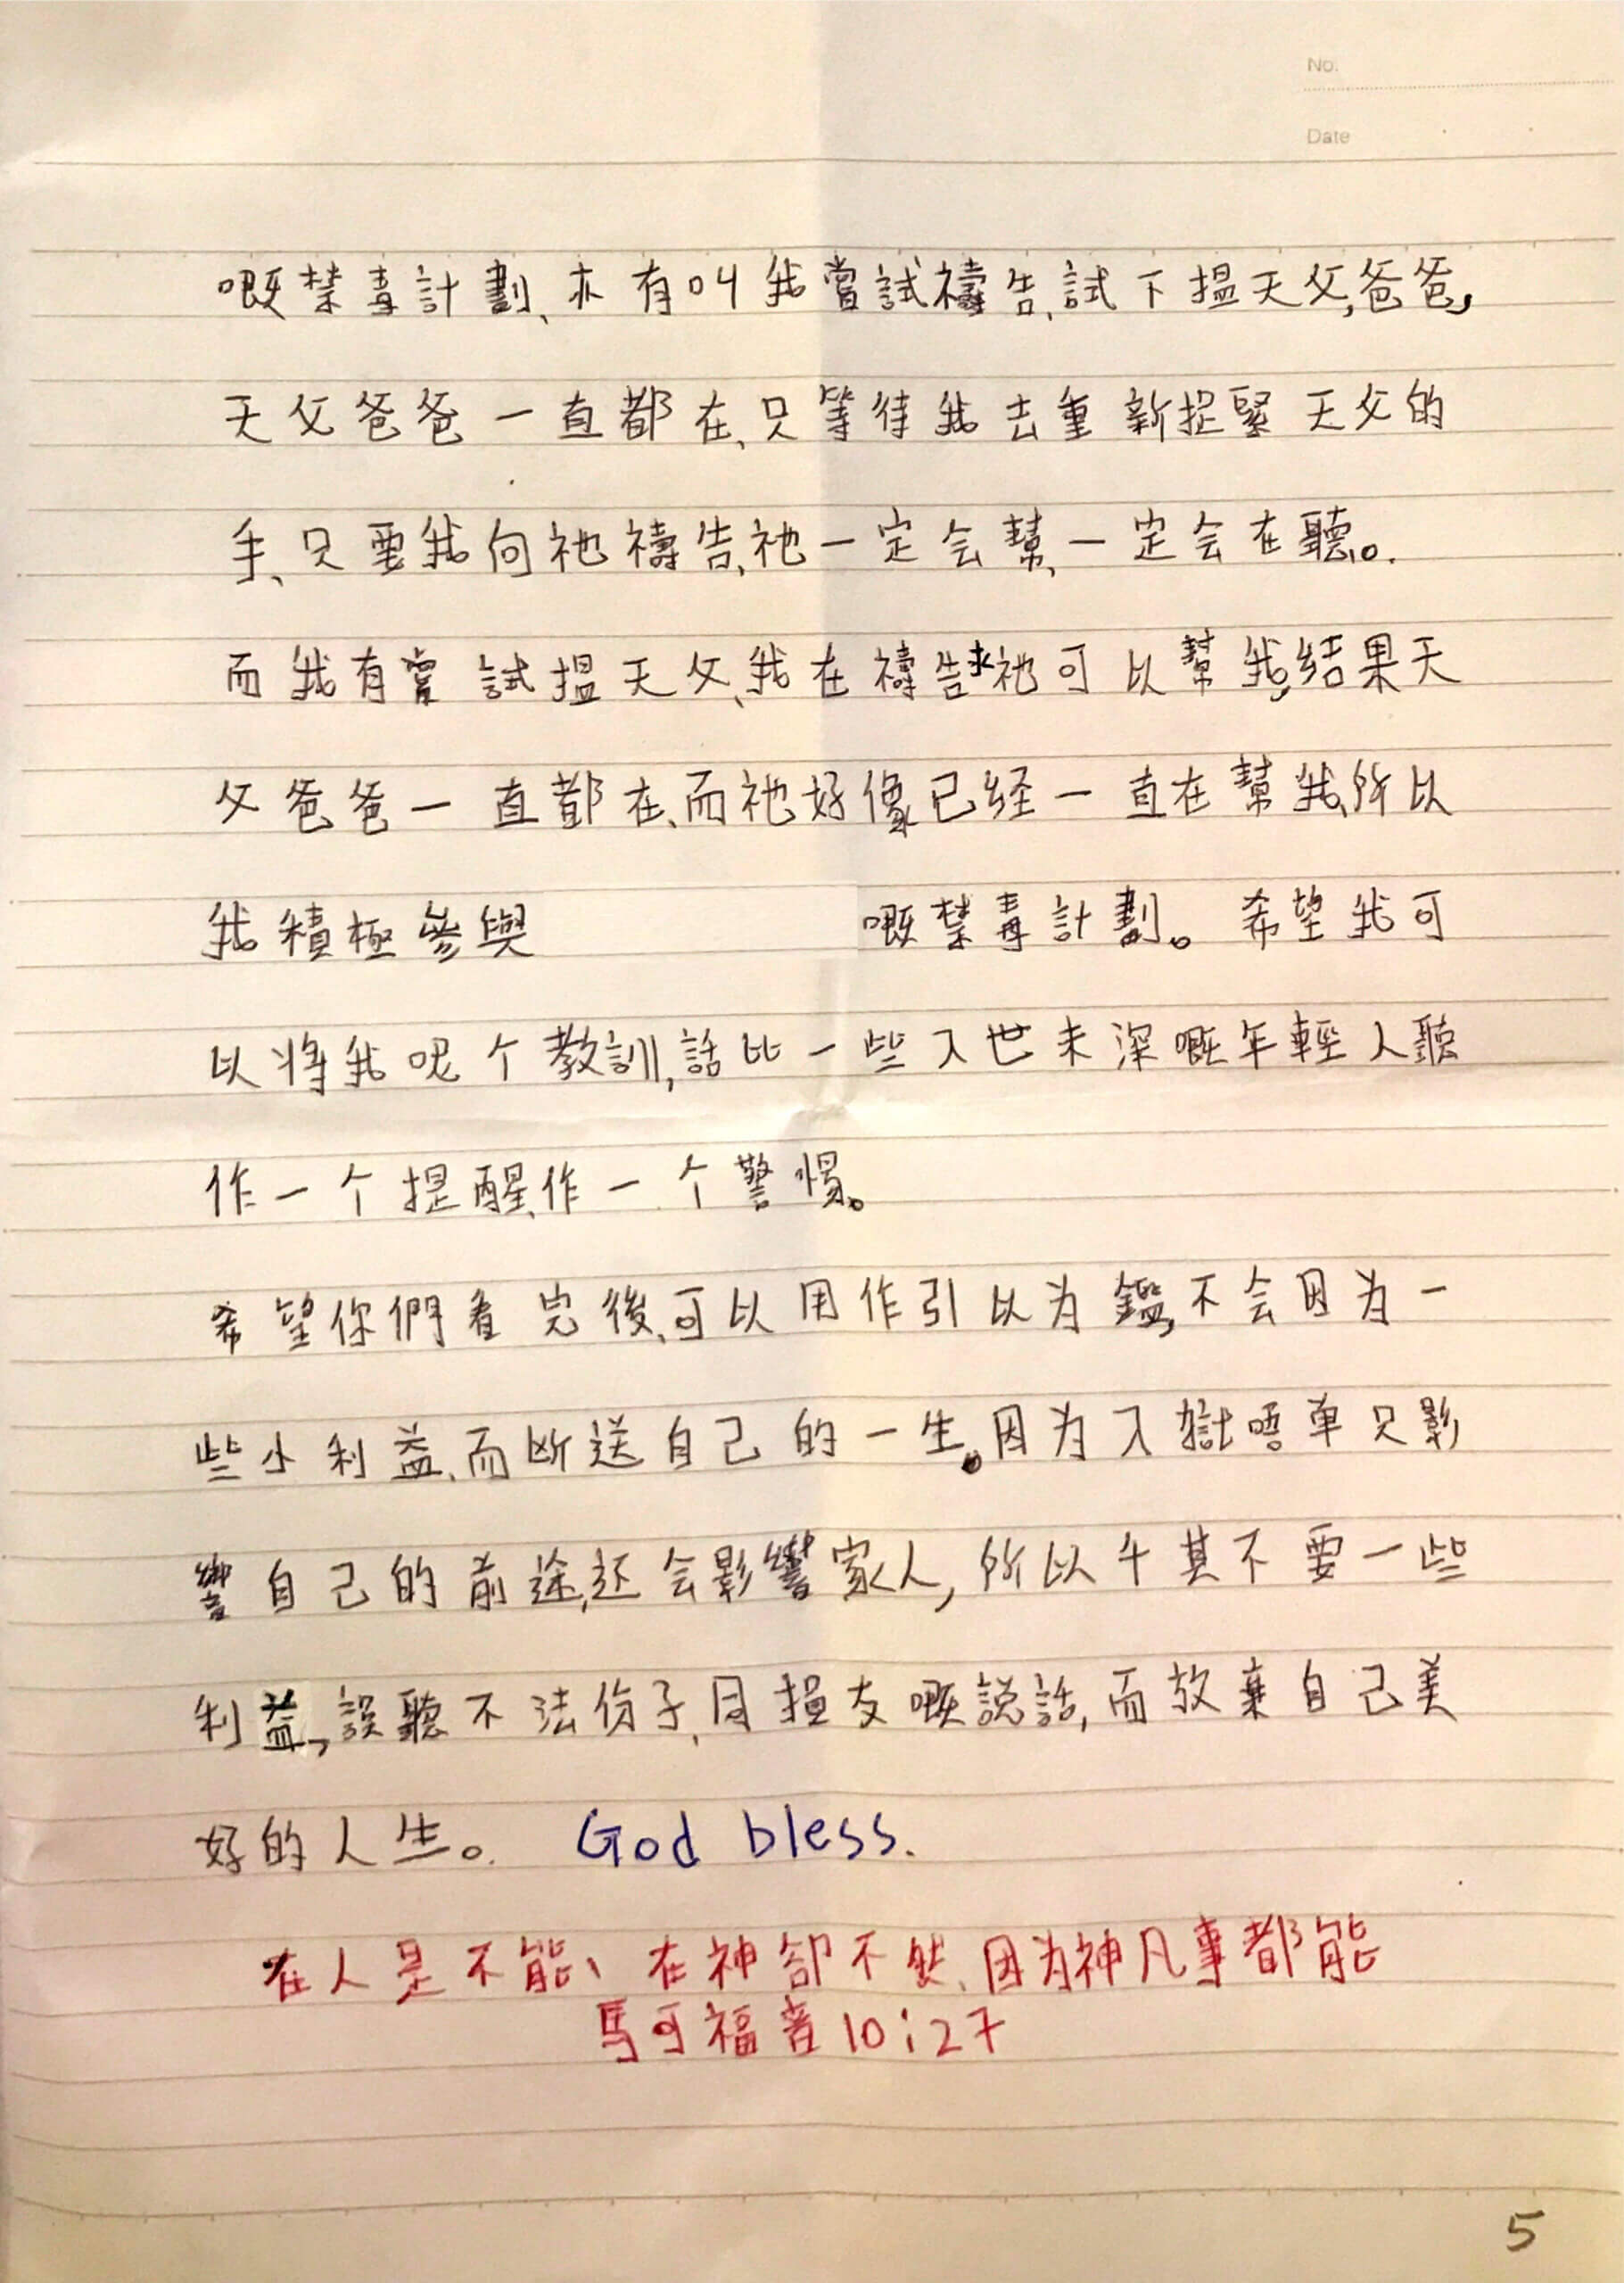 No.
Date
嘅禁毒計劃、亦有叫我嘗試禱告、試下揾天父,爸爸,
天父爸爸一直都在、只等待我去重新捉緊天父的
手、只要我向祂禱告、祂一定会幫、一定会在聽。
而我有嘗試揾天父、我在禱告求祂可以幫我,結果天
父爸爸一直都在、而祂好像已经一直在幫我、所以
我積極參與 嘅禁毒計劃。希望我可
以将我呢个教訓,話比一些入世未深嘅年輕人聽
作一个提醒、作一个警惕。
希望你們看完後、可以用作引以为鑑,不会因为一
些小利益、而断送自己的一生。因为入獄唔单只影
響自己的前途,还会影響家人,所以千其不要一些
利益,誤聽不法份子、同損友嘅説話,而放棄自己美
好的人生。 God bless.
在人是不能、在神卻不然、因为神凡事都能
馬可福音10:27
5